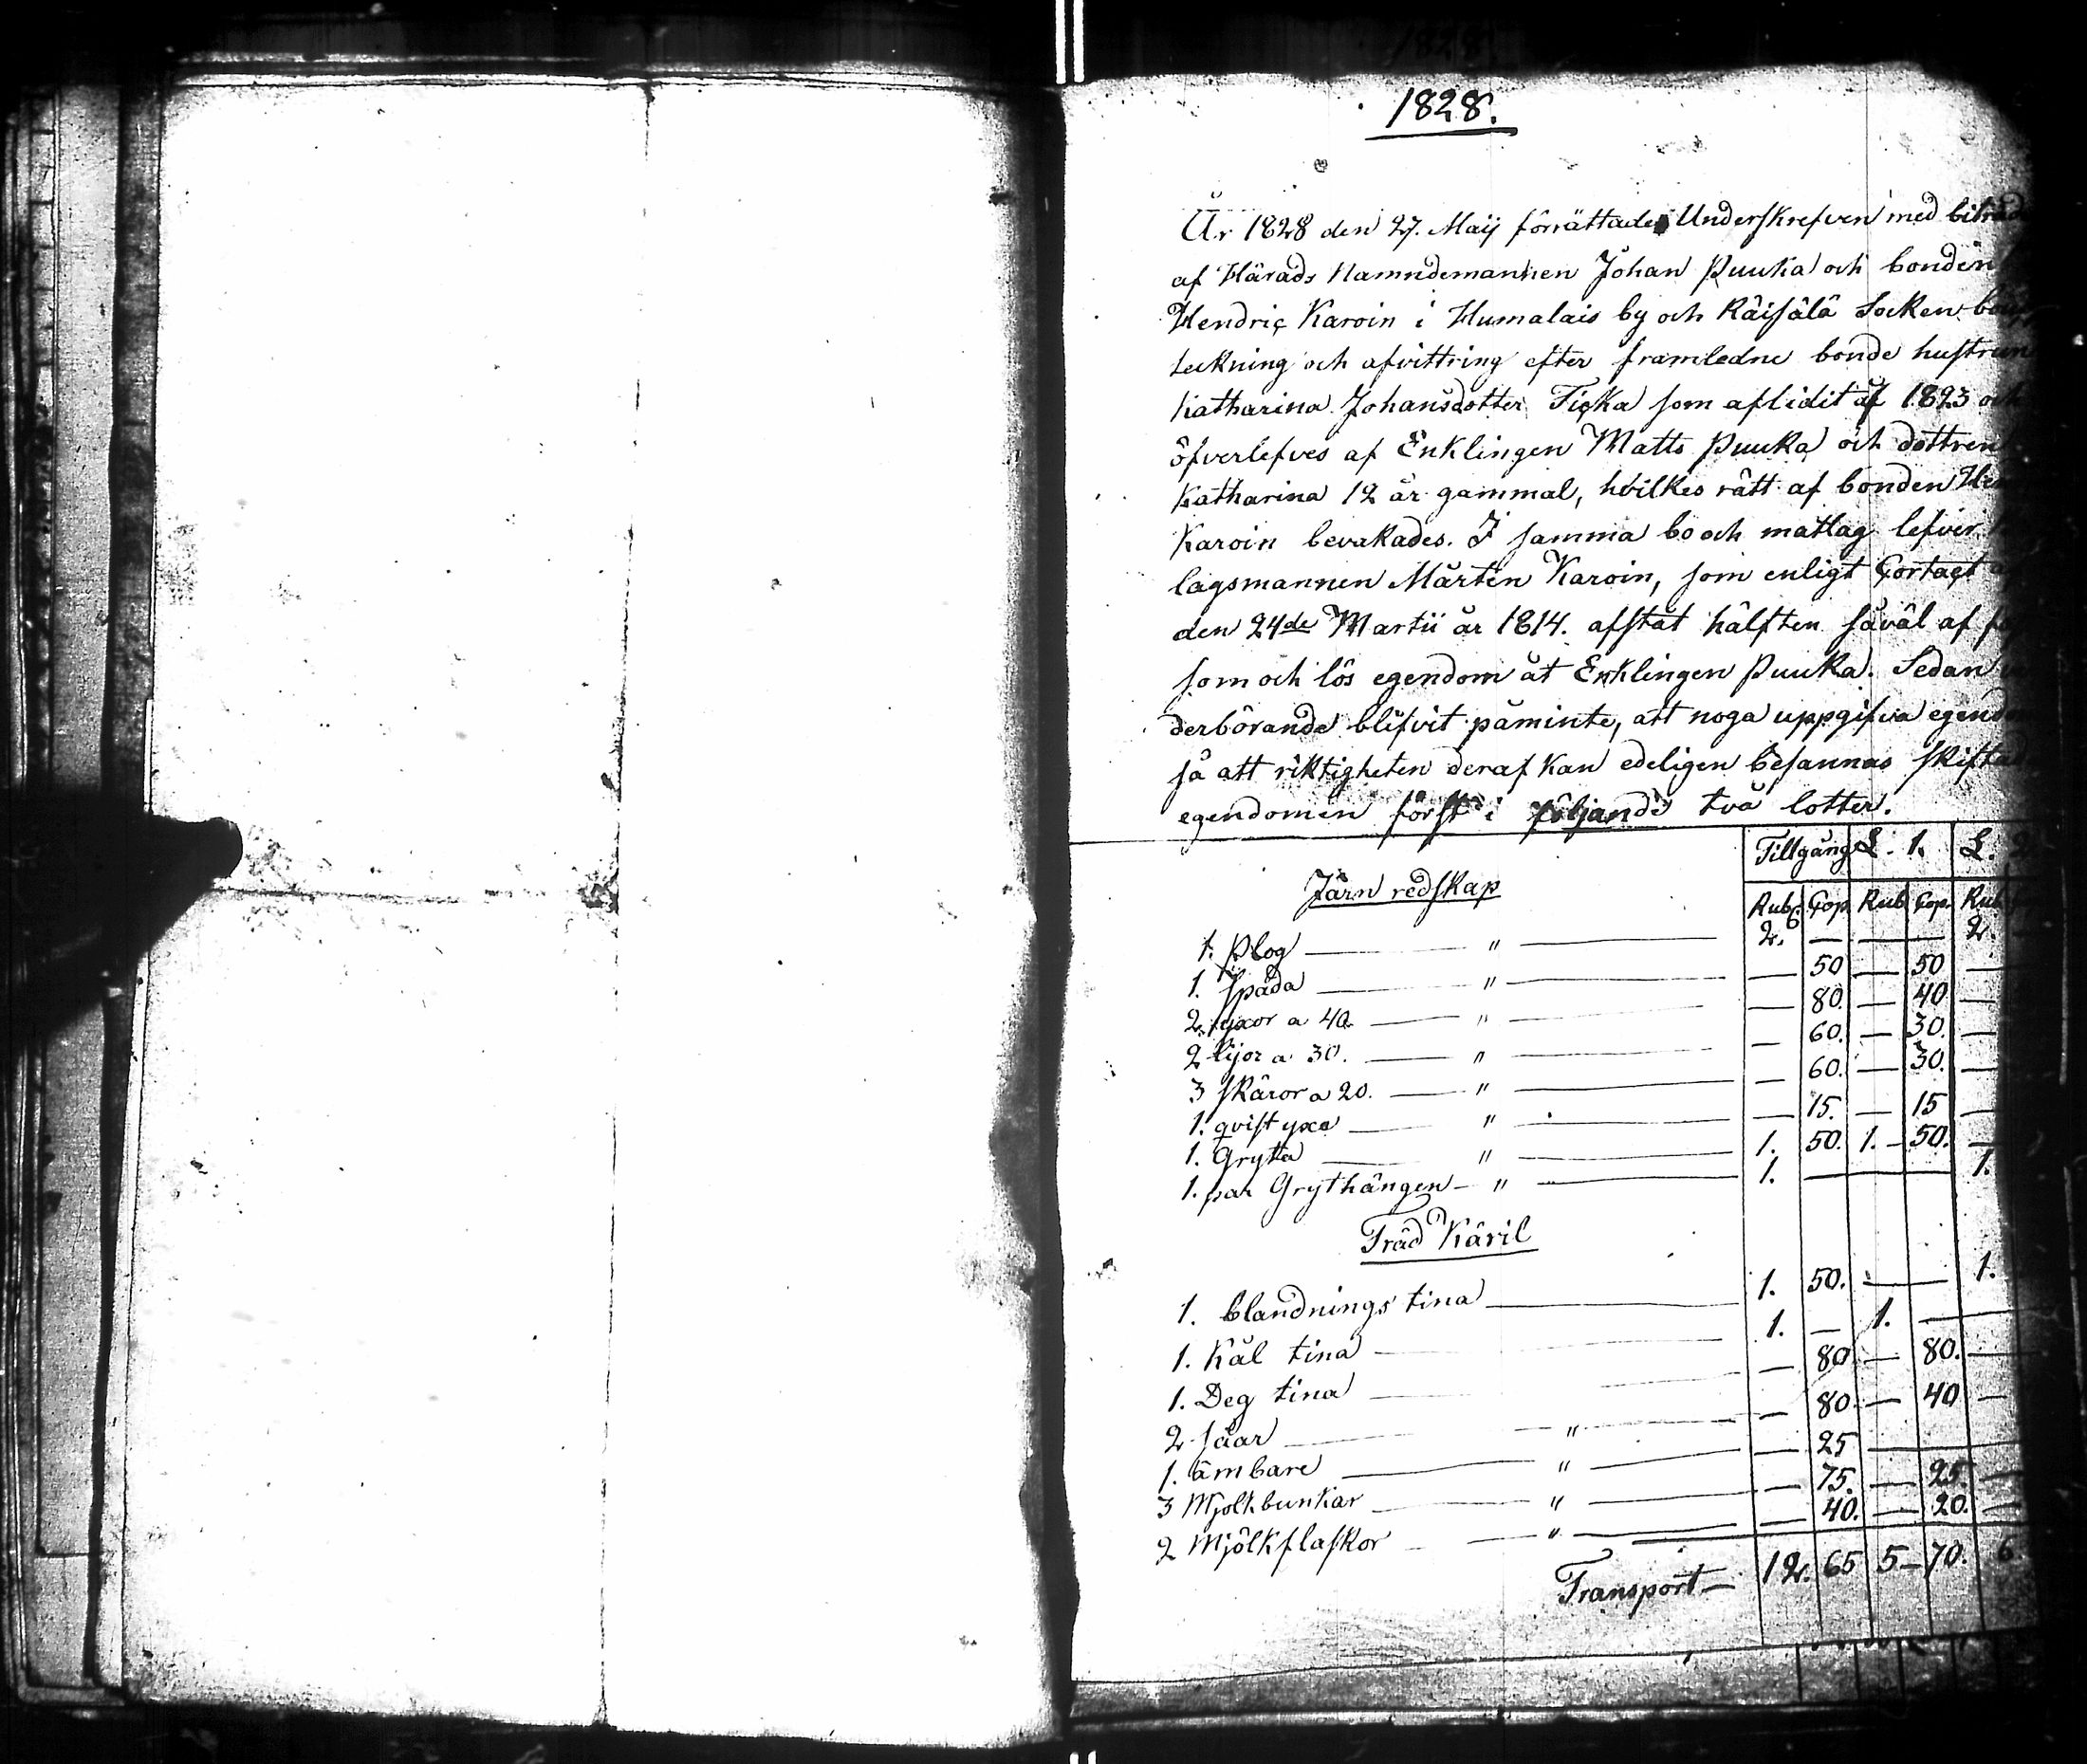 1828.
År 1828 den 27. Maij förrättade Underskrefven med biträde
af Härads Namndemannen Johan Puuka och bonden
Hendriç Karoin i Humalais by och Räisälä Socken
teckning och afvittring efter framledne bonde hustrun
Katharina Johansdotter Ticka som aflidit år 1823 och
öfverlefves af Enklingen Matts Puuka och dottren
Katharina 12 år gammal, hvilkes rätt af bonden
Karoin bevakades. I samma bo och matlag lefver
lagsmannen Mårten Karoin, som enligt Contact
den 24de Martii år 1814. afstat hälften såväl af
som och lös egendom åt Enklingen Puuka. Sedan
derbörande blifvit påminte, att noga uppgifva
så att riktigheten deraf kan edeligen besannas
egendomen först i följande två lotter.
Tillgång L. 1. L.
Järn redskap Rub. Cop. Rub Cop. Rub
1. Plog — " — 2. — — 2.
1. Spada — " — — 50 — 50 —
2. yxor a 40. — " — — 80. — 40 —
2 lijor a 30. — " — — 60. — 30. —
3 skäror a 20. — " — — 60. — 30. —
1. qvist yxa — " — — 15. — 15 —
1. Gryta — " — 1. 50. 1. — 50. —
1. par Grythängen — " — 1. — 1.
Träd Käril
1. blandnings tina — 1. 50. — 1.
1. Kål tina — 1. — 1. —
1. Deg tina — — 80 — 80. —
2 såar — " — — 80. — 40 —
1. ämbare — " — — 25 —
3 Mjölkbunkar — " — — 75. — 25 —
2 Mjölkflaskor — " — — 40. — 20. —
Transport — 12. 65 5 — 70. 6